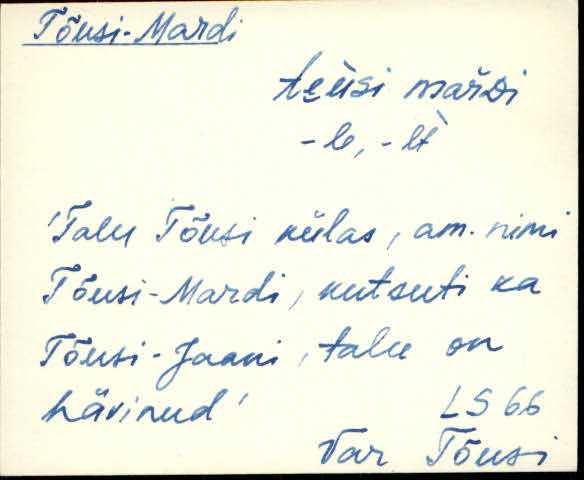 Tõusi-Mardi
te̮ùsi marDi
-le, -lt
'Talu Tõusi külas, am. nimi
Tõusi-Mardi, kutsuti ka
Tõusi-Jaani, talu on
hävinud'
LS 66
Var Tõusi